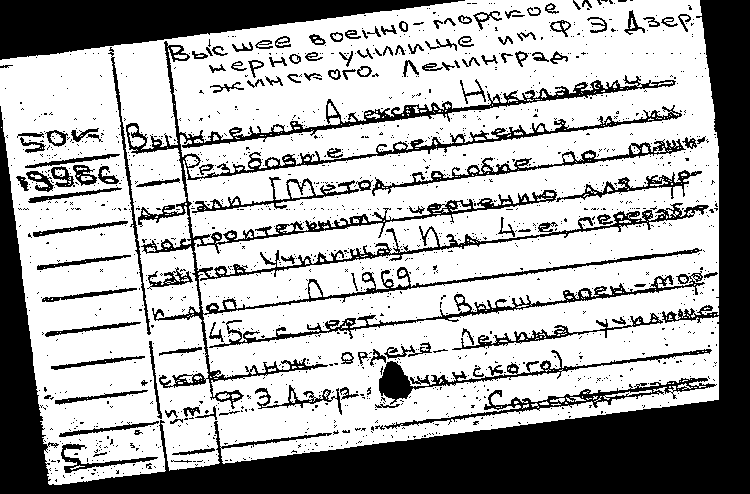 Высшее военно-морское инже
нерное училище им. Ф. Э. Дзер-
жинского. Ленинград.
50к
9986
Выжлецов, Александр Николаевич.
Резьбовые соединения и их
детали. [Метод. пособие по маши-
ностроительному черчению для кур-
сантов Училища]. Изд. 4-е, переработ.
и доп. Л, 1969.
45с. с черт. (Высш. воен-мор-
ское инж. ордена Ленина училище
им. Ф. Э. Дзержинского).
См. след.
5